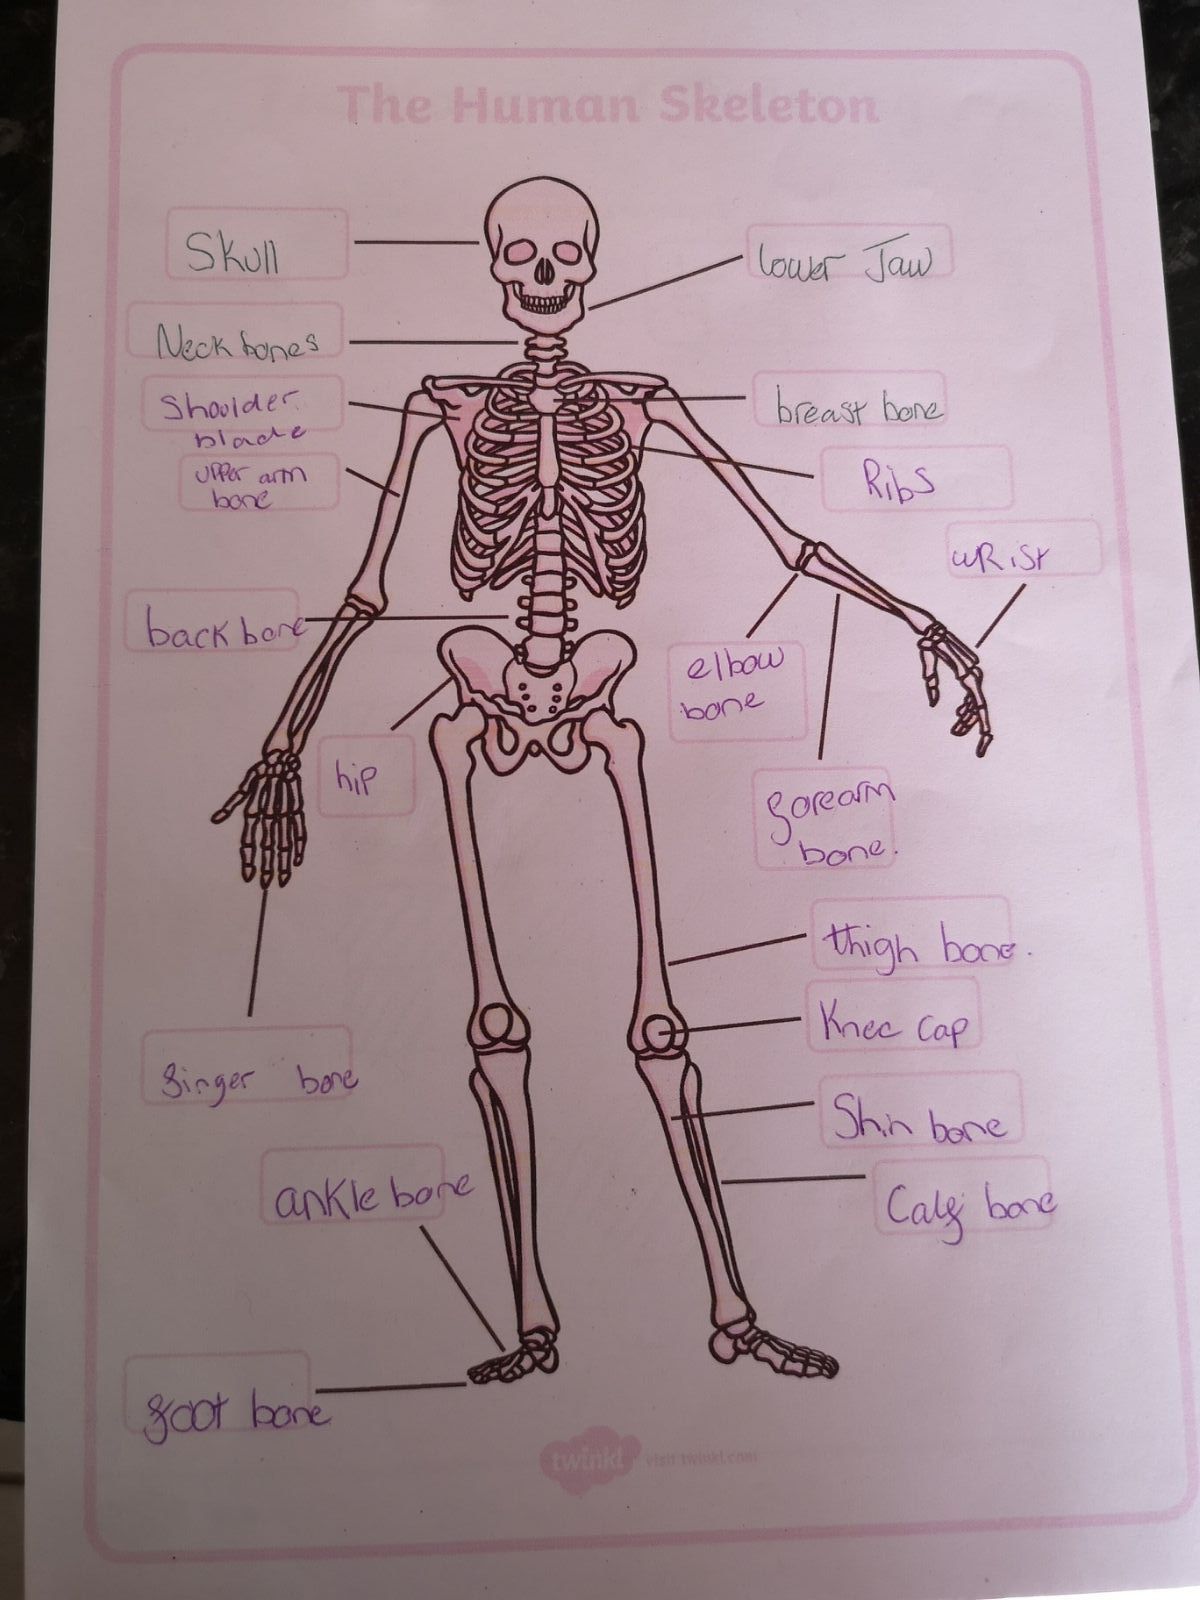 The Human Skeleton
Skull
lower Jaw
Neck bones
Shoulder
blade
breast bone
upper arm
bone
Ribs
wRist
back bone
elbow
bone
hip
forearm
bone.
thigh bone.
Knee cap
finger bone
Shin bone
ankle bone
Calf bone
foot bone
twinkl visit twinkl.com